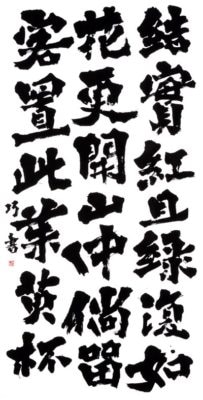 結實紅且緑復如
花更開山中儻留
客置此茱萸杯
巧書